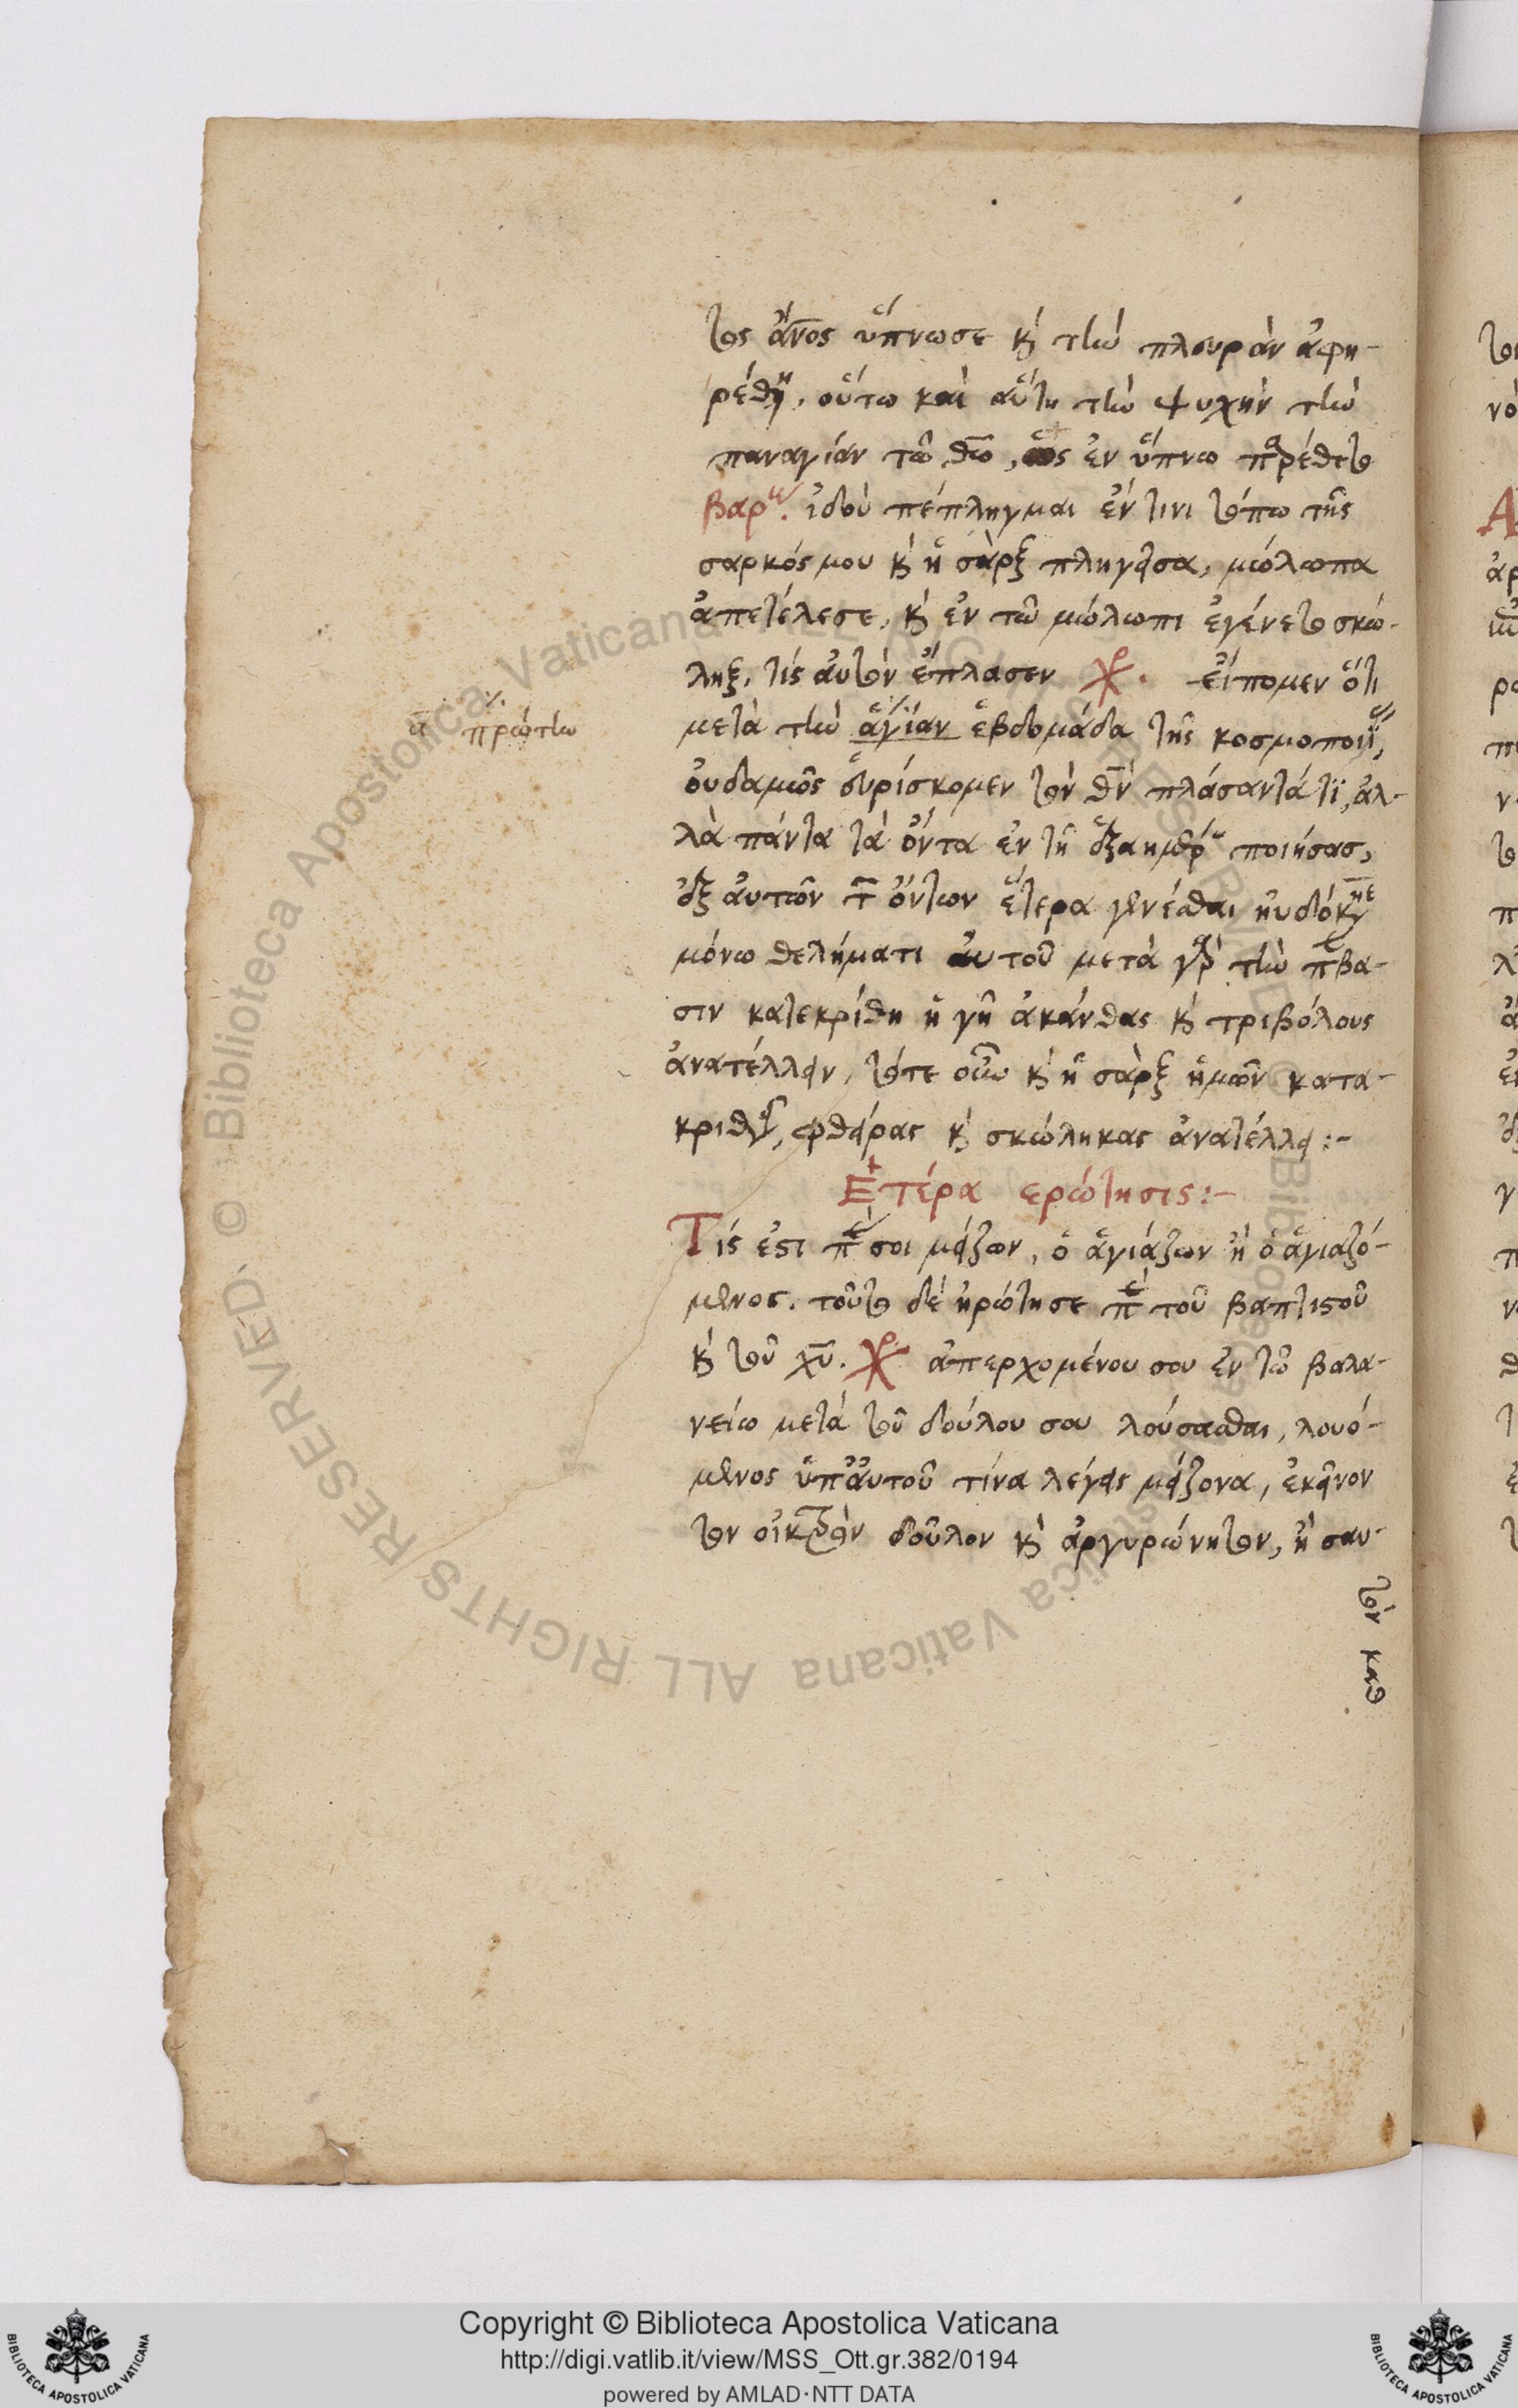 τος ἄν̅ος ὕπνωσε κ̀ τὴν πλευρὰν ἀφη-
ρέθη, οὕτω καὶ αὕτη τὴν ψυχὴν τὴν
παναγίαν τῶ θῶ, ὡς ἐν ὕπνω παρέθετο
Βαρ. ἰδοὺ πέπληγμαι ἔν τινι τόπω τῆς
σαρκός μου κ̀ ἡ σὰρξ πληγεῖσα, μώλωπα
ἀπετέλεσε, κ̀ ἐν τῶ μώλωπι ἐγένετο σκώ-
ληξ, τίς αὐτὸν ἔπλασεν Χρ. εἴπομεν ὅτι
μετὰ τὴν ἁγίαν ἑβδομάδα τῆς κοσμοποιΐ,
α πρώτην
οὐδαμῶς εὑρίσκομεν τὸν θν̅ πλάσαντά τι, ἀλ-
λὰ πάντα τὰ ὄντα ἐν τῆ ἑξαημέρω ποιήσας,
ἐξ αὐτῶν τ ὄντων ἕτερα γενέσθαι ηὐδόκησε
μόνω θελήματι αὐτοῦ μετὰ γὰρ τὴν πβα-
σιν κατεκρίθη ἡ γῆ ἀκάνθας κ̀ τριβόλους
ἀνατέλλειν, τότε οὖν κ̀ ἡ σὰρξ ἡμῶν κατα-
κριθεῖσα, φθεῖρας κ̀ σκώληκας ἀνατέλλει :-
Ἑτέρα ερώτησις :-
Τίς ἐστι π σοι μείζων, ὁ ἁγιάζων ἢ ὁ ἁγιαζό-
μενος. τοῦτο δὲ ἠρώτησε π τοῦ βαπτιστοῦ
κ̀ τοῦ χυ̅. Χρ ἀπερχομένου σου ἐν τῶ βαλα-
νείω μετὰ τοῦ δούλου σου λούσασθαι, λουό-
μενος ὑπ' αὐτοῦ τίνα λέγεις μείζονα, ἐκεῖνον
τὸν οἰκτρὸν δοῦλον κ̀ ἀργυρώνητον, ἢ σαυ-
τὸν κατ
Copyright © Biblioteca Apostolica Vaticana
http://digi.vatlib.it/view/MSS_Ott.gr.382/0194
powered by AMLAD·NTT DATA